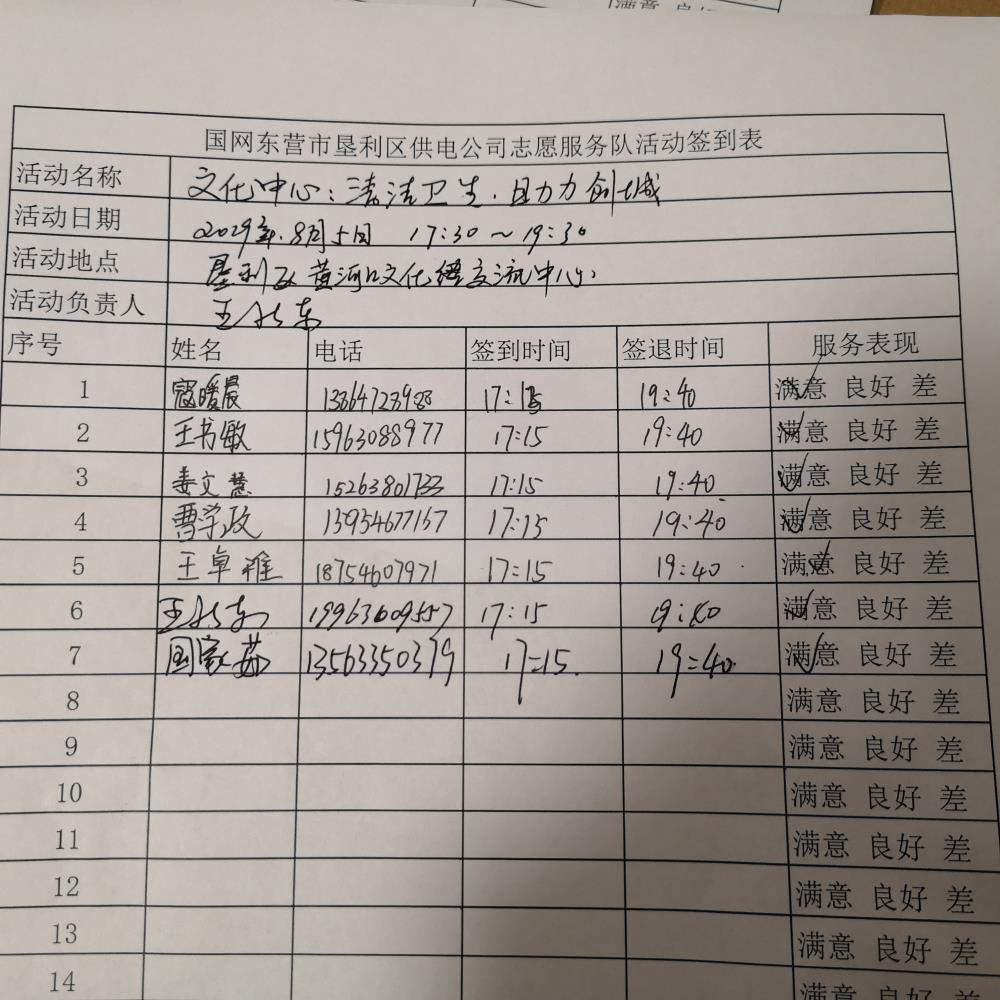 满意 良好
国网东营市垦利区供电公司志愿服务队活动签到表
活动名称 文化中心:清洁卫生.助力创城
活动日期 2029年.8月5日 17:30～19:30
活动地点 垦利区黄河口文化经交流中心
活动负责人 王
序号 姓名 电话 签到时间 签退时间 服务表现
1 寇暖晨 17:15 19:40 满意 良好 差
2 王书敏 15963088977 17:15 19:40 满意 良好 差
3 姜文慧 15263801733 17:15 19:40 满意 良好 差
4 曹学政 13954677157 17:15 19:40 满意 良好 差
5 王卓雅 18754607971 17:15 19:40 满意 良好 差
6 王 19963609557 17:15 19:40 满意 良好 差
7 国家茹 13563350379 17:15 19:40 满意 良好 差
8 满意 良好 差
9 满意 良好 差
10 满意 良好 差
11 满意 良好 差
12 满意 良好 差
13 满意 良好 差
14 满意 良好 差